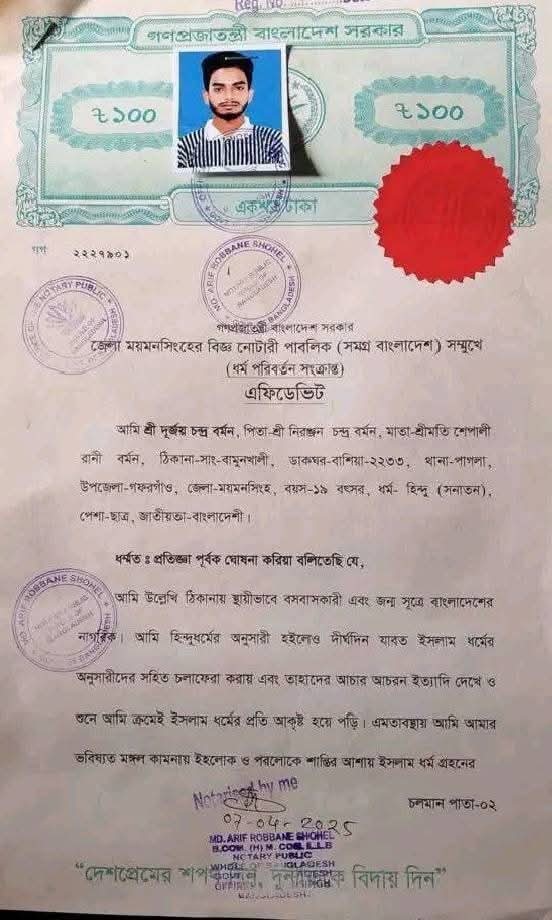 Reg. No.
গণপ্রজাতন্ত্রী বাংলাদেশ সরকার
৳১০০ ৳১০০
একশত টাকা
গপ ২২২৭৯০১
MD. ARIF ROBBANE SHOHEL
NOTARY PUBLIC
BANGLADESH
গণপ্রজাতন্ত্রী বাংলাদেশ সরকার
জেলা ময়মনসিংহের বিজ্ঞ নোটারী পাবলিক (সমগ্র বাংলাদেশ) সম্মুখে
(ধর্ম পরিবর্তন সংক্রান্ত)
এফিডেভিট
আমি শ্রী দূর্জয় চন্দ্র বর্মন, পিতা-শ্রী নিরঞ্জন চন্দ্র বর্মন, মাতা-শ্রীমতি শেপালী
রানী বর্মন, ঠিকানা-সাং-বামুনখালী, ডাকঘর-বাশিয়া-২২৩৩, থানা-পাগলা,
উপজেলা-গফরগাঁও, জেলা-ময়মনসিংহ, বয়স-১৯ বৎসর, ধর্ম- হিন্দু (সনাতন),
পেশা-ছাত্র, জাতীয়তা-বাংলাদেশী।
ধর্মত ঃ প্রতিজ্ঞা পূর্বক ঘোষনা করিয়া বলিতেছি যে,
আমি উল্লেখি ঠিকানায় স্থায়ীভাবে বসবাসকারী এবং জন্ম সূত্রে বাংলাদেশের
নাগরিক। আমি হিন্দুধর্মের অনুসারী হইলেও দীর্ঘদিন যাবত ইসলাম ধর্মের
অনুসারীদের সহিত চলাফেরা করায় এবং তাহাদের আচার আচরন ইত্যাদি দেখে ও
শুনে আমি ক্রমেই ইসলাম ধর্মের প্রতি আকৃষ্ট হয়ে পড়ি। এমতাবস্থায় আমি আমার
ভবিষ্যত মঙ্গল কামনায় ইহলোক ও পরলোকে শান্তির আশায় ইসলাম ধর্ম গ্রহনের
চলমান পাতা-০২
Notarised by me
07-04-2025
MD. ARIF ROBBANE SHOHEL
B.COM. (H) M. COM. L.L.B
NOTARY PUBLIC
WHOLE OF BANGLADESH
“দেশপ্রেমের শপথ দুর্নীতিকে বিদায় দিন”